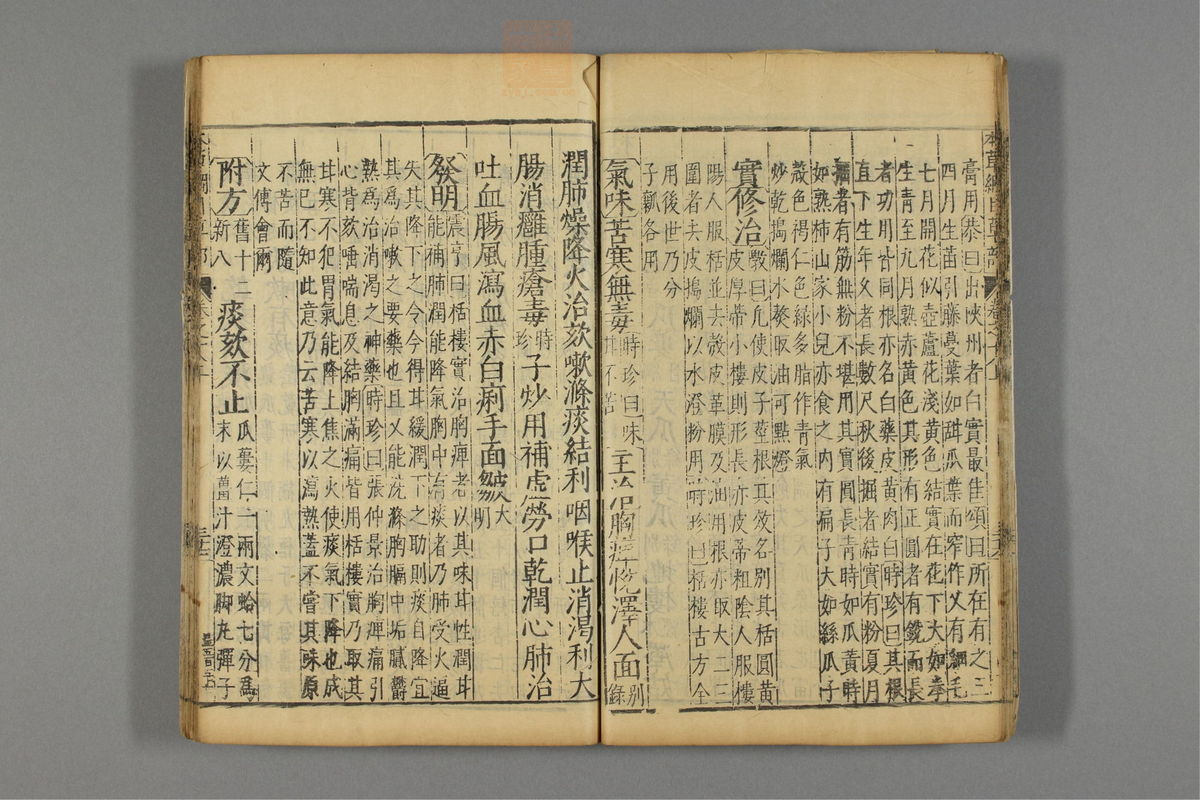 膏用恭曰出陝州者白實最佳頌曰所在有之三
四月生苗引藤蔓葉如甜瓜葉而窄作叉有細毛
七月開花似壺蘆花淺黃色結實在花下大如拳
生青至九月熟赤黃色其形有正圓者有銳而長
者功用皆同根亦名白藥皮黃肉白時珍曰其根
直下生年久者長數尺秋後掘者結實有粉夏月
掘者有筋無粉不堪用其實圓長青時如瓜黃時
如熟柿山家小兒亦食之內有扁子大如絲瓜子
殼色褐仁色綠多脂作青氣
炒乾搗爛水熬取油可點燈
實修治斆曰凡使皮子莖根其效各別其栝圓黃
皮厚蒂小樓則形長赤皮蒂粗陰人服樓
陽人服栝並去殼皮革膜及油用根亦取大二三
圍者去皮搗爛以水澄粉用時珍曰栝樓古方全
用後世乃分
子瓤各用
氣味苦寒無毒時珍曰味甘不苦主治胸痺悅澤人面別錄
潤肺燥降火治欬嗽滌痰結利咽喉止消渴利大
腸消癰腫瘡毒時珍子炒用補虛勞口乾潤心肺治
吐血腸風瀉血赤白痢手面皺大明
發明震亨曰栝樓實治胸痺者以其味甘性潤甘
能補肺潤能降氣胸中有痰者乃肺受火逼
失其降下之令今得甘緩潤下之助則痰自降宜
其為治嗽之要藥也且又能洗滌胸膈中垢膩鬱
熱為治消渴之神藥時珍曰張仲景治胸痺痛引
心背欬唾喘息及結胸滿痛皆用栝樓實乃取其
甘寒不犯胃氣能降上焦之火使痰氣下降也成
無己不知此意乃云苦寒以瀉熱蓋不嘗其味原
不苦而隨
文傅會爾
附方舊十二新八痰欬不止瓜蔞仁一兩文蛤七分為
末以薑汁澄濃腳丸彈子